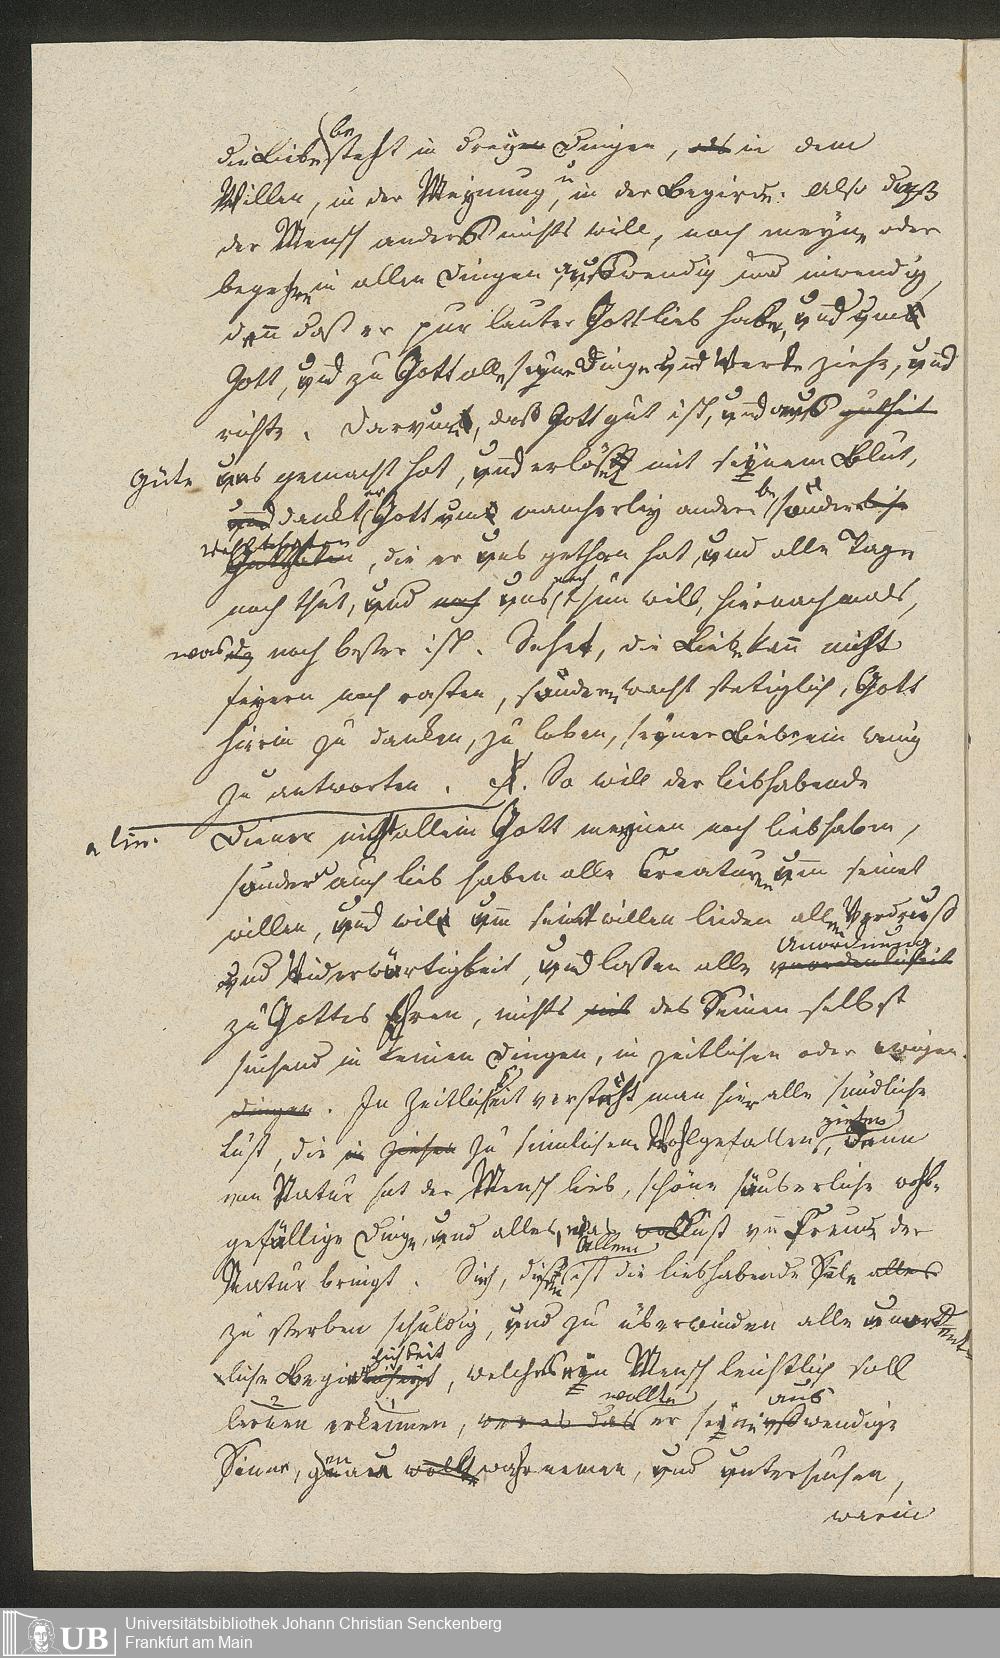 die Liebe bestehet in dreyen Dingen, als in dem
Willen, in der Meynung, u in der Begirde: Also daß
der Mensch anderß nichts will, noch meyne, oder
begehre in allen Dingen außwendig und inwendig,
dann daß er pur lauter Gott lieb habe, und um
Gott, und zu Gott alle seyne Dinge und Werke ziehe, und
richte. Darum, daß Gott gut ist, und auß gutheit
Güte uns gemacht hat, und erlößt mit seynem Blut,
und dankt er Gott um mancherley andere besondere
Wohlthaten Gutthaten, die er uns gethan hat, und alle Tage
noch thut, und noch uns noch thun will, hiernachmals,
was da noch besser ist. Sehet, die Liebe kann nicht
feyern noch rasten, sondern wacht stetiglich, Gott
hierin zu danken, zu loben, seyner Liebe ein wenig
zu antworten. So will der liebhabende
a lin. Diener nicht allein Gott meynen noch liebhaben,
sonder auch lieb haben alle Creaturen um seinet
willen, und will um seinetwillen leiden allen Verdruß
und Widerwärtigkeit, und lassen alle Unordnung unordenlicheit
zu Gottes Ehren, nichts mit des Seinen selbst
suchend in keinen Dingen, in zeitlichen oder ewigen
dingen. In Zeitlichkeit versteht man hier alle sündliche
Lust, die in ziehen zu sinnlichem Wohlgefallen zieten, dann
von Natur hat der Mensch lieb, schöne säuberliche wohl-
gefällige Dinge, und alles, was wollust und Freude der
Natur bringt. Sich, diesem allem ist die liebhabende Sele alles
zu sterben schuldig, und zu überwinden alle unordent-
liche Begirlichkeit, welches eyn Mensch leichtlich soll
lernen erkennen, wer es das wollte er seyne auswendige
Sinne, genau wollte wahrnemen, und untersuchen,
warin
Universitätsbibliothek Johann Christian Senckenberg
Frankfurt am Main
UB